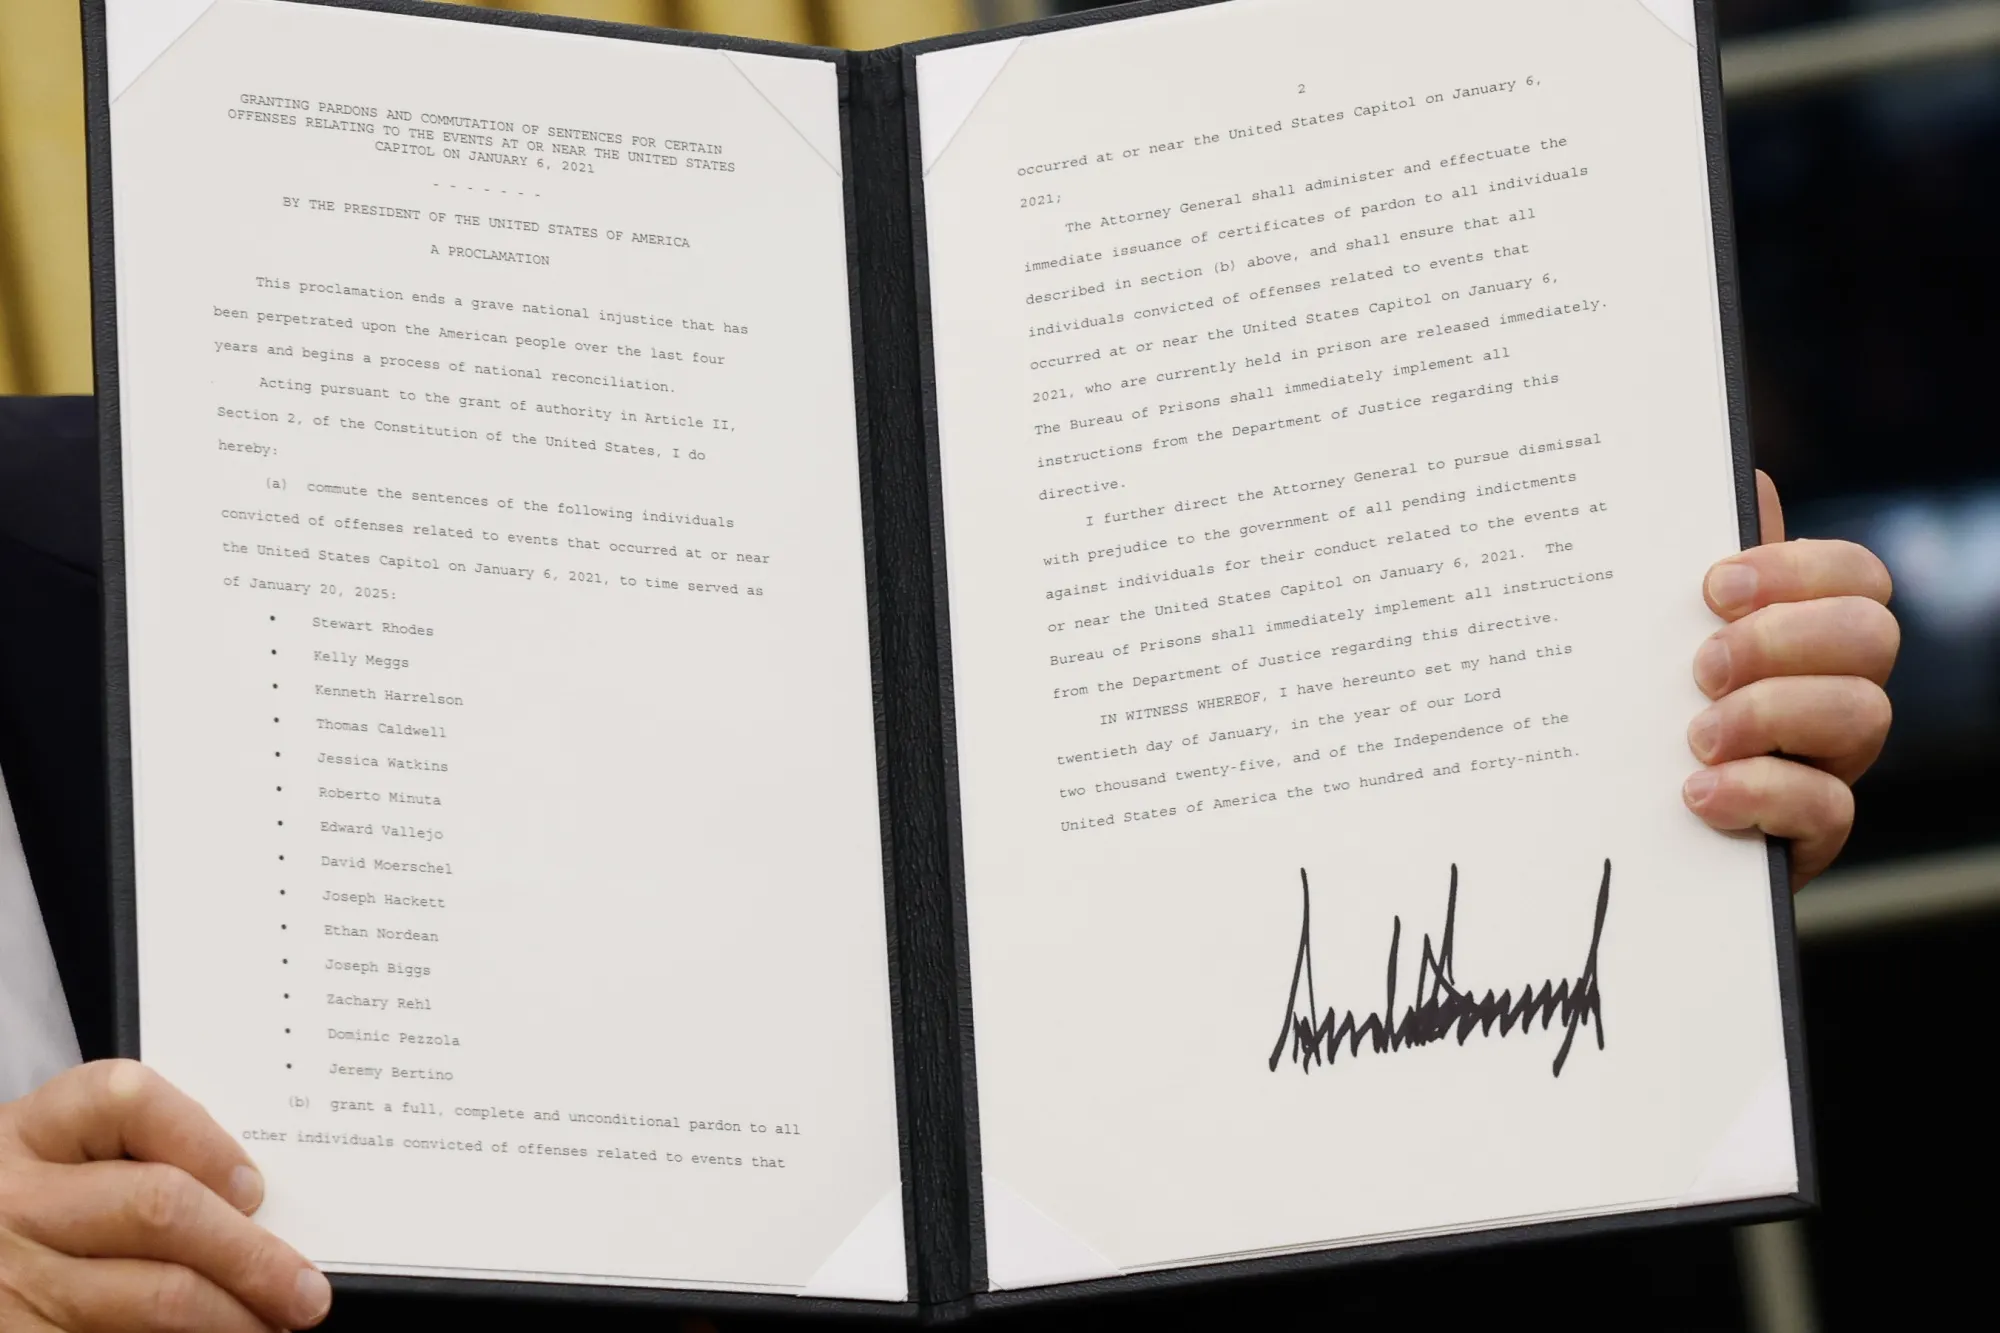 GRANTING PARDONS AND COMMUTATION OF SENTENCES FOR CERTAIN
OFFENSES RELATING TO THE EVENTS AT OR NEAR THE UNITED STATES
CAPITOL ON JANUARY 6, 2021
- - - - - - -
BY THE PRESIDENT OF THE UNITED STATES OF AMERICA
A PROCLAMATION
This proclamation ends a grave national injustice that has
been perpetrated upon the American people over the last four
years and begins a process of national reconciliation.
Acting pursuant to the grant of authority in Article II,
Section 2, of the Constitution of the United States, I do
hereby:
(a) commute the sentences of the following individuals
convicted of offenses related to events that occurred at or near
the United States Capitol on January 6, 2021, to time served as
of January 20, 2025:
• Stewart Rhodes
• Kelly Meggs
• Kenneth Harrelson
• Thomas Caldwell
• Jessica Watkins
• Roberto Minuta
• Edward Vallejo
• David Moerschel
• Joseph Hackett
• Ethan Nordean
• Joseph Biggs
• Zachary Rehl
• Dominic Pezzola
• Jeremy Bertino
(b) grant a full, complete and unconditional pardon to all
other individuals convicted of offenses related to events that
2
occurred at or near the United States Capitol on January 6,
2021;
The Attorney General shall administer and effectuate the
immediate issuance of certificates of pardon to all individuals
described in section (b) above, and shall ensure that all
individuals convicted of offenses related to events that
occurred at or near the United States Capitol on January 6,
2021, who are currently held in prison are released immediately.
The Bureau of Prisons shall immediately implement all
instructions from the Department of Justice regarding this
directive.
I further direct the Attorney General to pursue dismissal
with prejudice to the government of all pending indictments
against individuals for their conduct related to the events at
or near the United States Capitol on January 6, 2021. The
Bureau of Prisons shall immediately implement all instructions
from the Department of Justice regarding this directive.
IN WITNESS WHEREOF, I have hereunto set my hand this
twentieth day of January, in the year of our Lord
two thousand twenty-five, and of the Independence of the
United States of America the two hundred and forty-ninth.